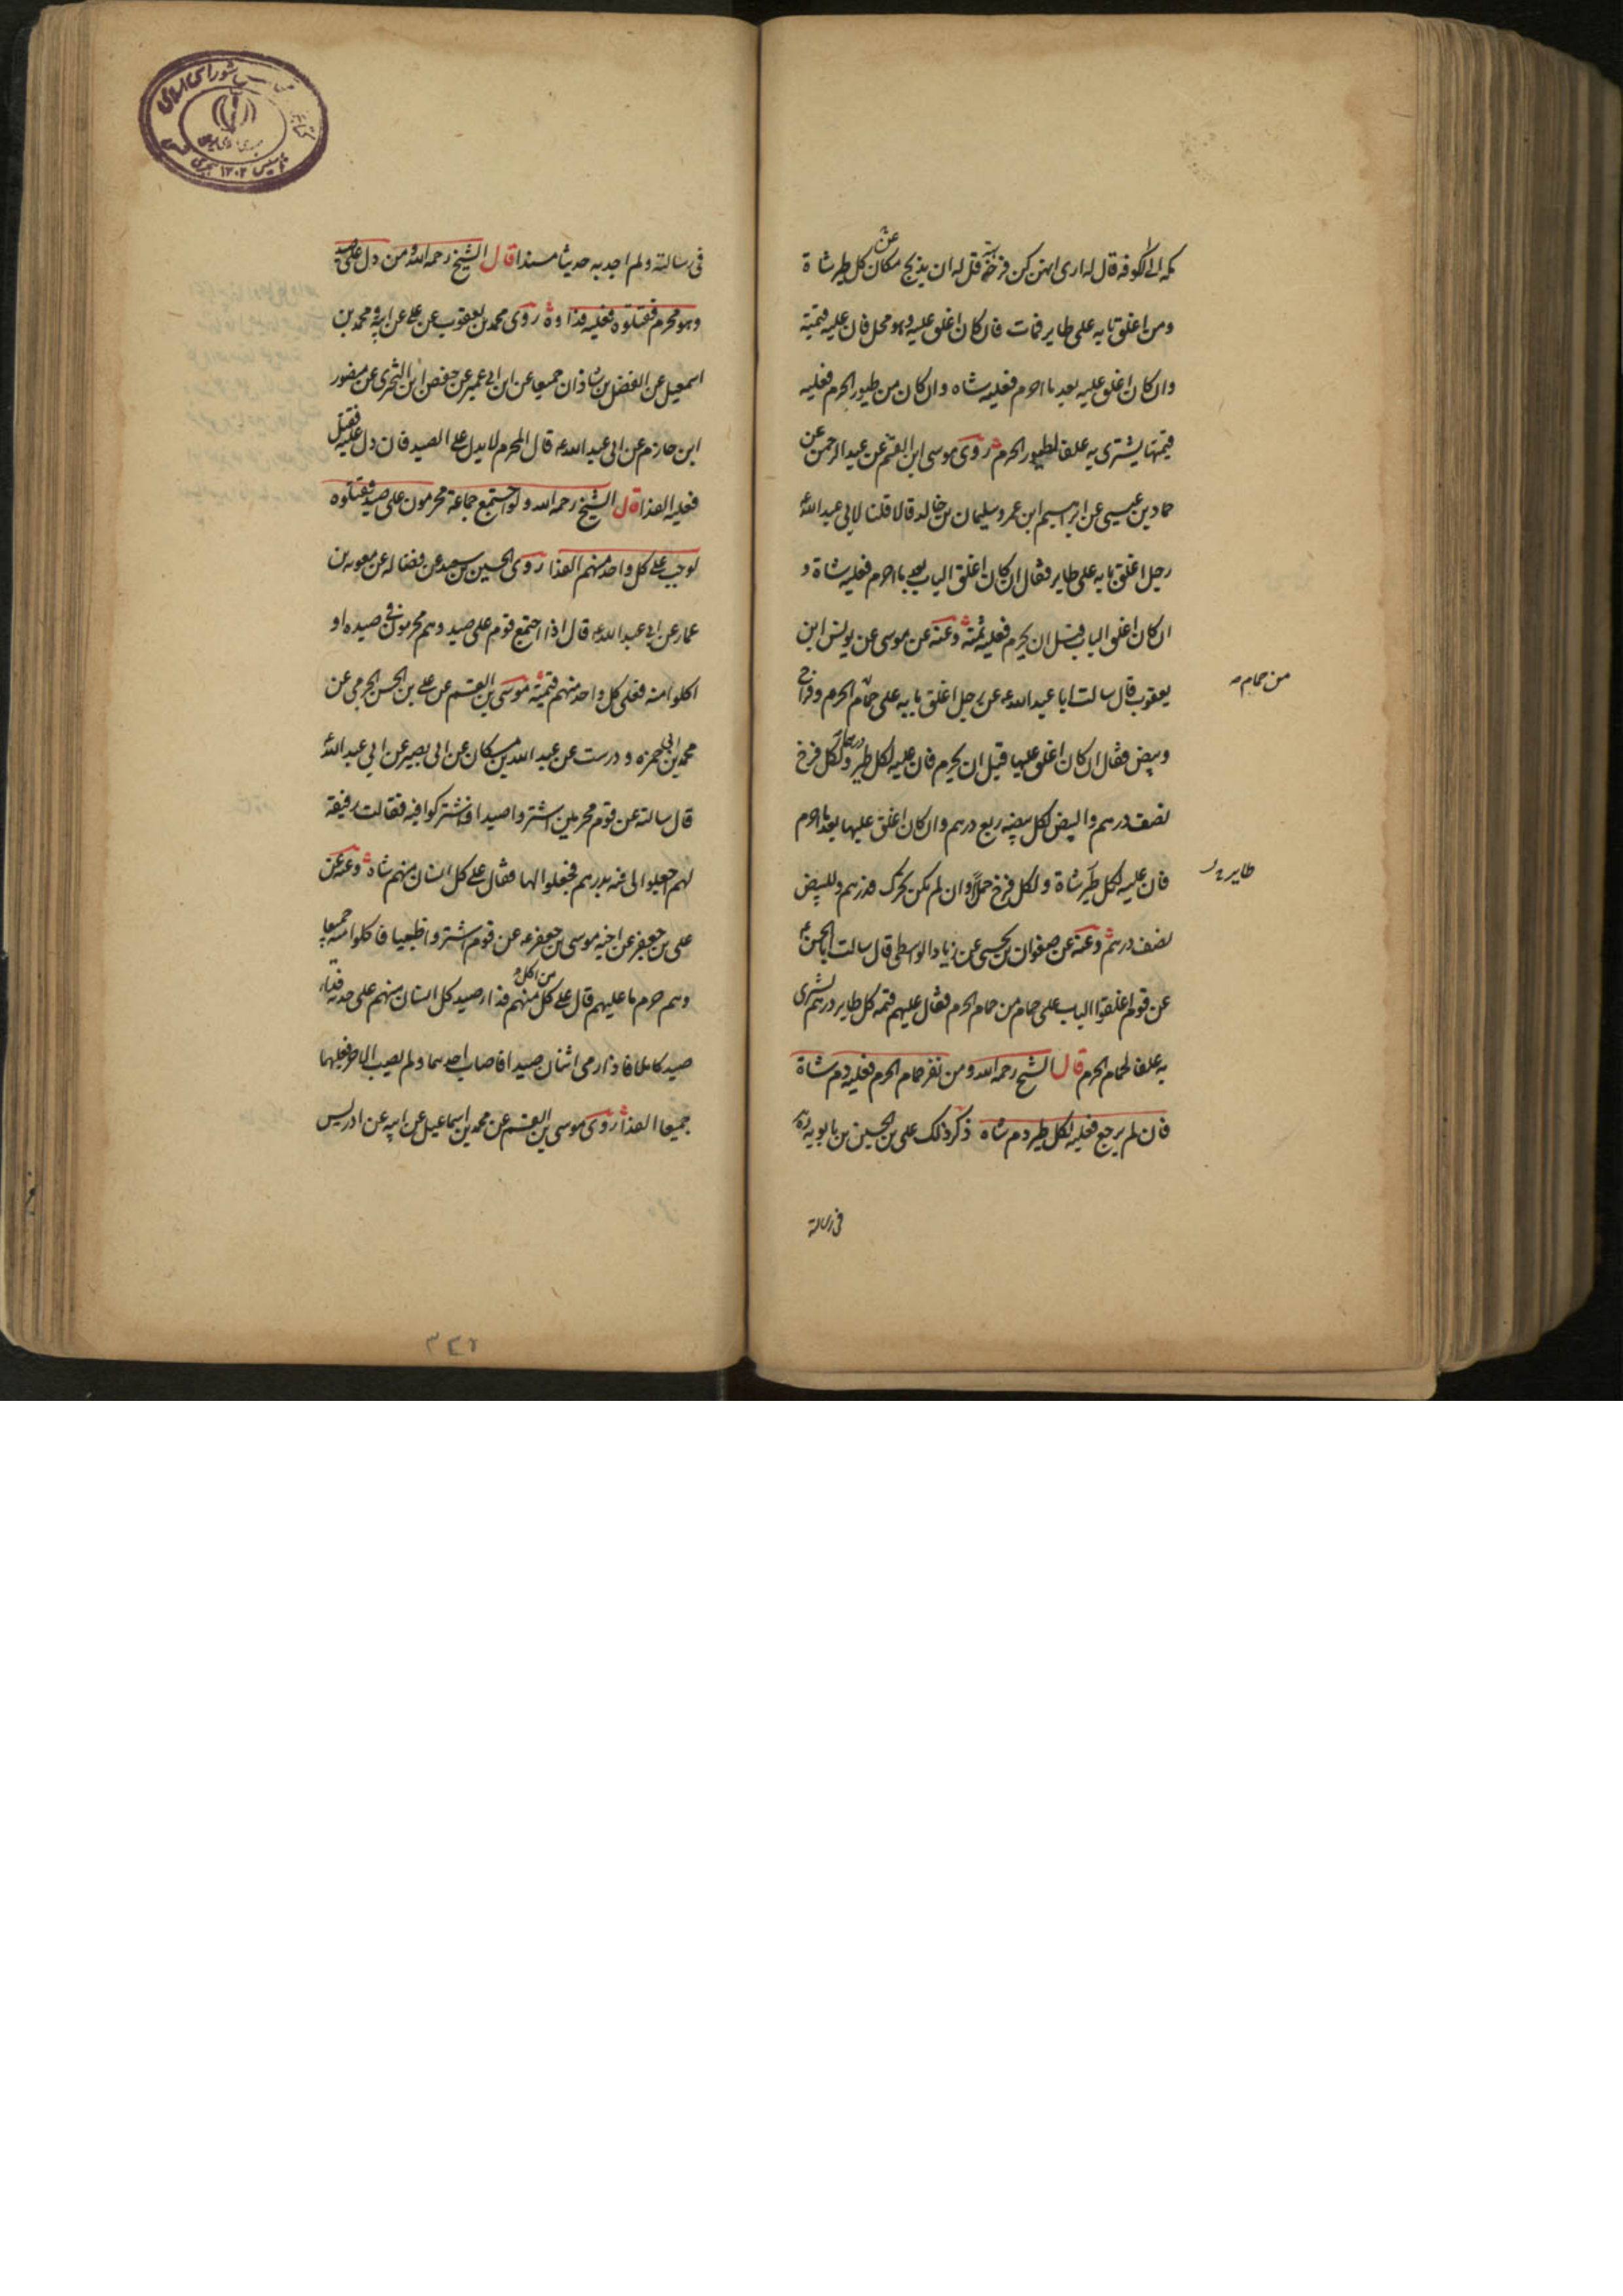 مكه الى الكوفه قال له ارى انهن كن فرخة قل له ان يذبح عن مكان كل طير شاة
ومن اغلق بابه على طاير فمات فان كان اغلق عليه وهو محل فان عليه قيمته
وان كان اغلق عليه بعد ما احرم فعليه شاه وان كان من طيور الحرم فعليه
قيمتها يشترى به علفا لطيور الحرم روى موسى ابن القسم عن عبد الرحمن عن
حماد بن عيسى عن ابرهيم ابن عمر وسليمان بن خالد قالا قلنا لابي عبد الله ع
رجل اغلق بابه على طاير فقال ان كان اغلق الباب بعد ما احرم فعليه شاة و
ان كان اغلق الباب قبل ان يحرم فعليه ثمنه وعنه عن موسى عن يونس ابن
يعقوب قال سالت ابا عبد الله ع عن رجل اغلق بابه على حمام الحرم وفراخ
من حمام
وبيض فقال ان كان اغلق عليها قبل ان يحرم فان عليه لكل طير درهما ولكل فرخ
نصف درهم والبيض لكل بيضه ربع درهم وان كان اغلق عليها بعد ما احرم
فان عليه لكل طير شاة ولكل فرخ حملا وان لم يكن تحرك فدرهم وللبيض
طاير
نصف درهم وعنه عن صفوان بن يحيى عن زياد الواسطى قال سالت ابا الحسن ع
عن قوم اغلقوا الباب على حمام من حمام الحرم فقال عليهم قيمه كل طاير درهم يشترى
به علفا لحمام الحرم قال الشيخ رحمه الله ومن نفر حمام الحرم فعليه دم شاة
فان لم يرجع فعليه لكل طير دم شاه ذكر ذلك على بن الحسين بن بابويه ره
فى رسالته
فى رسالته ولم اجد به حديثا مسندا قال الشيخ رحمه الله ومن دل على صيد
وهو محرم فقتلوه فعليه فداوه روى محمد بن يعقوب عن على عن ابيه ومحمد بن
اسمعيل عن الفضل بن شاذان جميعا عن ابن ابى عمير عن حفص ابن البخترى عن منصور
ابن حازم عن ابى عبد الله ع قال المحرم لا يدل على الصيد فان دل عليه فقتل
فعليه الفدا قال الشيخ رحمه الله ولو اجتمع جماعة محرمون على صيد فقتلوه
لوجب على كل واحد منهم الفدا روى الحسين بن سعيد عن فضاله عن معويه بن
عمار عن ابى عبد الله ع قال اذا اجتمع قوم على صيد وهم محرمون فى صيده او
اكلوا منه فعلى كل واحد منهم قيمته موسى بن القسم عن على بن الحسن الجرمى عن
محمد بن ابى حمزه ودرست عن عبد الله بن مسكان عن ابى بصير عن ابى عبد الله ع
قال سالته عن قوم محرمين اشتروا صيدا فاشتركوا فيه فقالت رفيقة
لهم اجعلوا لى فيه بدرهم فجعلوا لها فقال على كل انسان منهم شاه وعنه عن
على بن جعفر عن اخيه موسى بن جعفر ع عن قوم اشتروا ظبيا فاكلوا منه جميعا
وهم حرم ما عليهم قال على كل من اكل منهم فدا صيد كل انسان منهم على حدته فداء
صيد كاملا فاذا رمى اثنان صيدا فاصاب احدهما ولم يصب الاخر فعليهما
جميعا الفدا روى موسى بن القسم عن محمد بن اسماعيل عن ابيه عن ادريس